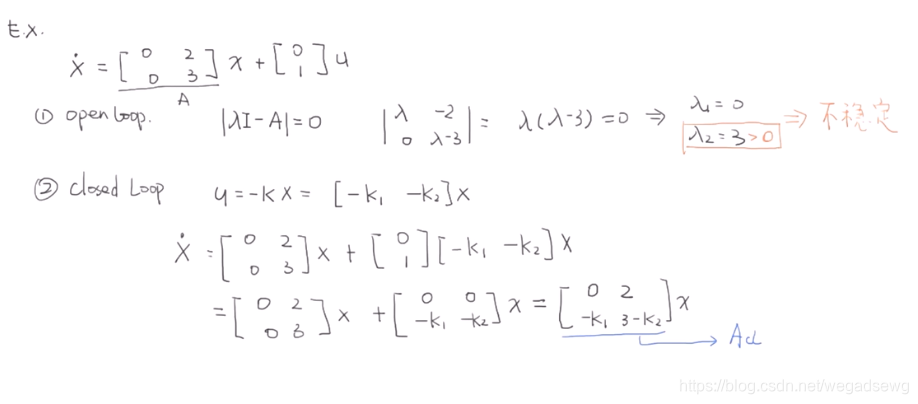 E.X.
ẋ = [0 2; 0 3] x + [0; 1] u
A
① open loop. |λI-A|=0 |λ -2; 0 λ-3| = λ(λ-3)=0 ⇒ λ₁=0 λ₂=3>0 ⇒ 不稳定
② closed Loop u=-kx= [-k₁ -k₂]x
ẋ = [0 2; 0 3] x + [0; 1][-k₁ -k₂]x
= [0 2; 0 3] x + [0 0; -k₁ -k₂] x = [0 2; -k₁ 3-k₂] x
→ Acl
https://blog.csdn.net/wegadsewg